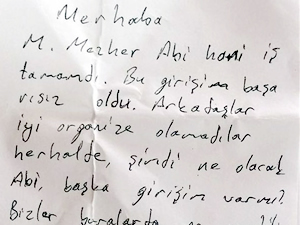 Merhaba
M. Mezher Abi hani iş
tamamdı. Bu girişim başa
rısız oldu. Arkadaşlar
iyi organize olamadılar
herhalde, şimdi ne olacak
Abi, başka girişim varmı?
Bizler buralarda